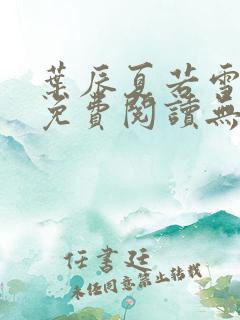 葉辰夏若雪
免費閱讀無
任書廷
未任同意禁止轉載